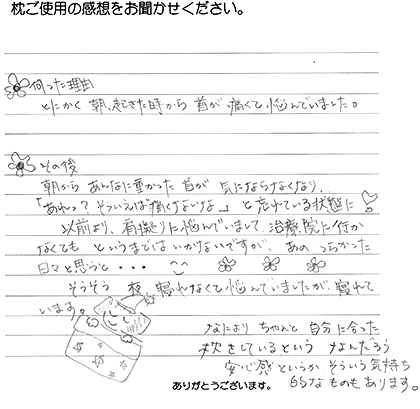 枕ご使用の感想をお聞かせください。
伺った理由
とにかく 朝、起きた時から 首が 痛くて 悩んでいました。
その後
朝から あんなに重かった 首が 気にならなくなり、
「あれっ？そういえば痛くないな。」と 忘れている状態に!
以前より、肩凝りに悩んでいまして、治療院に行か
なくても というまでは いかないですが、あの つらかった
日々と思うと・・・
そうそう 夜、寝れなくて 悩んでいましたが 寝れて
います。
なにより ちゃんと 自分に合った
枕をしているという なんだろう
安心感というか そういう気持ち
的なものもあります。
ありがとうございます。